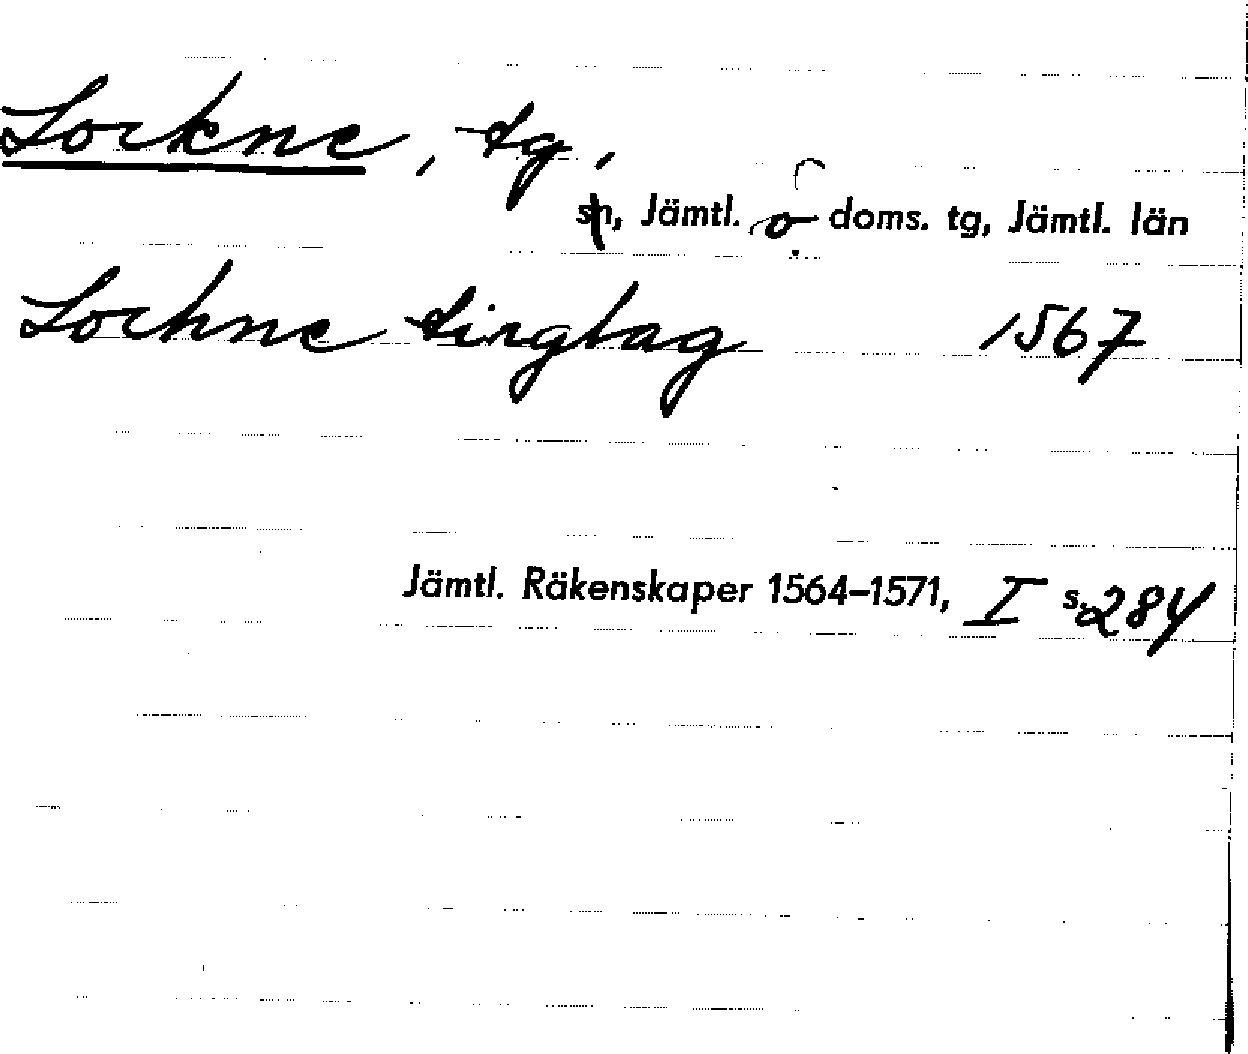 Lockne, tg,
sn, Jämtl. ö doms. tg, Jämtl. län
Lockne tinglag 1567
Jämtl. Räkenskaper 1564–1571, I s. 284